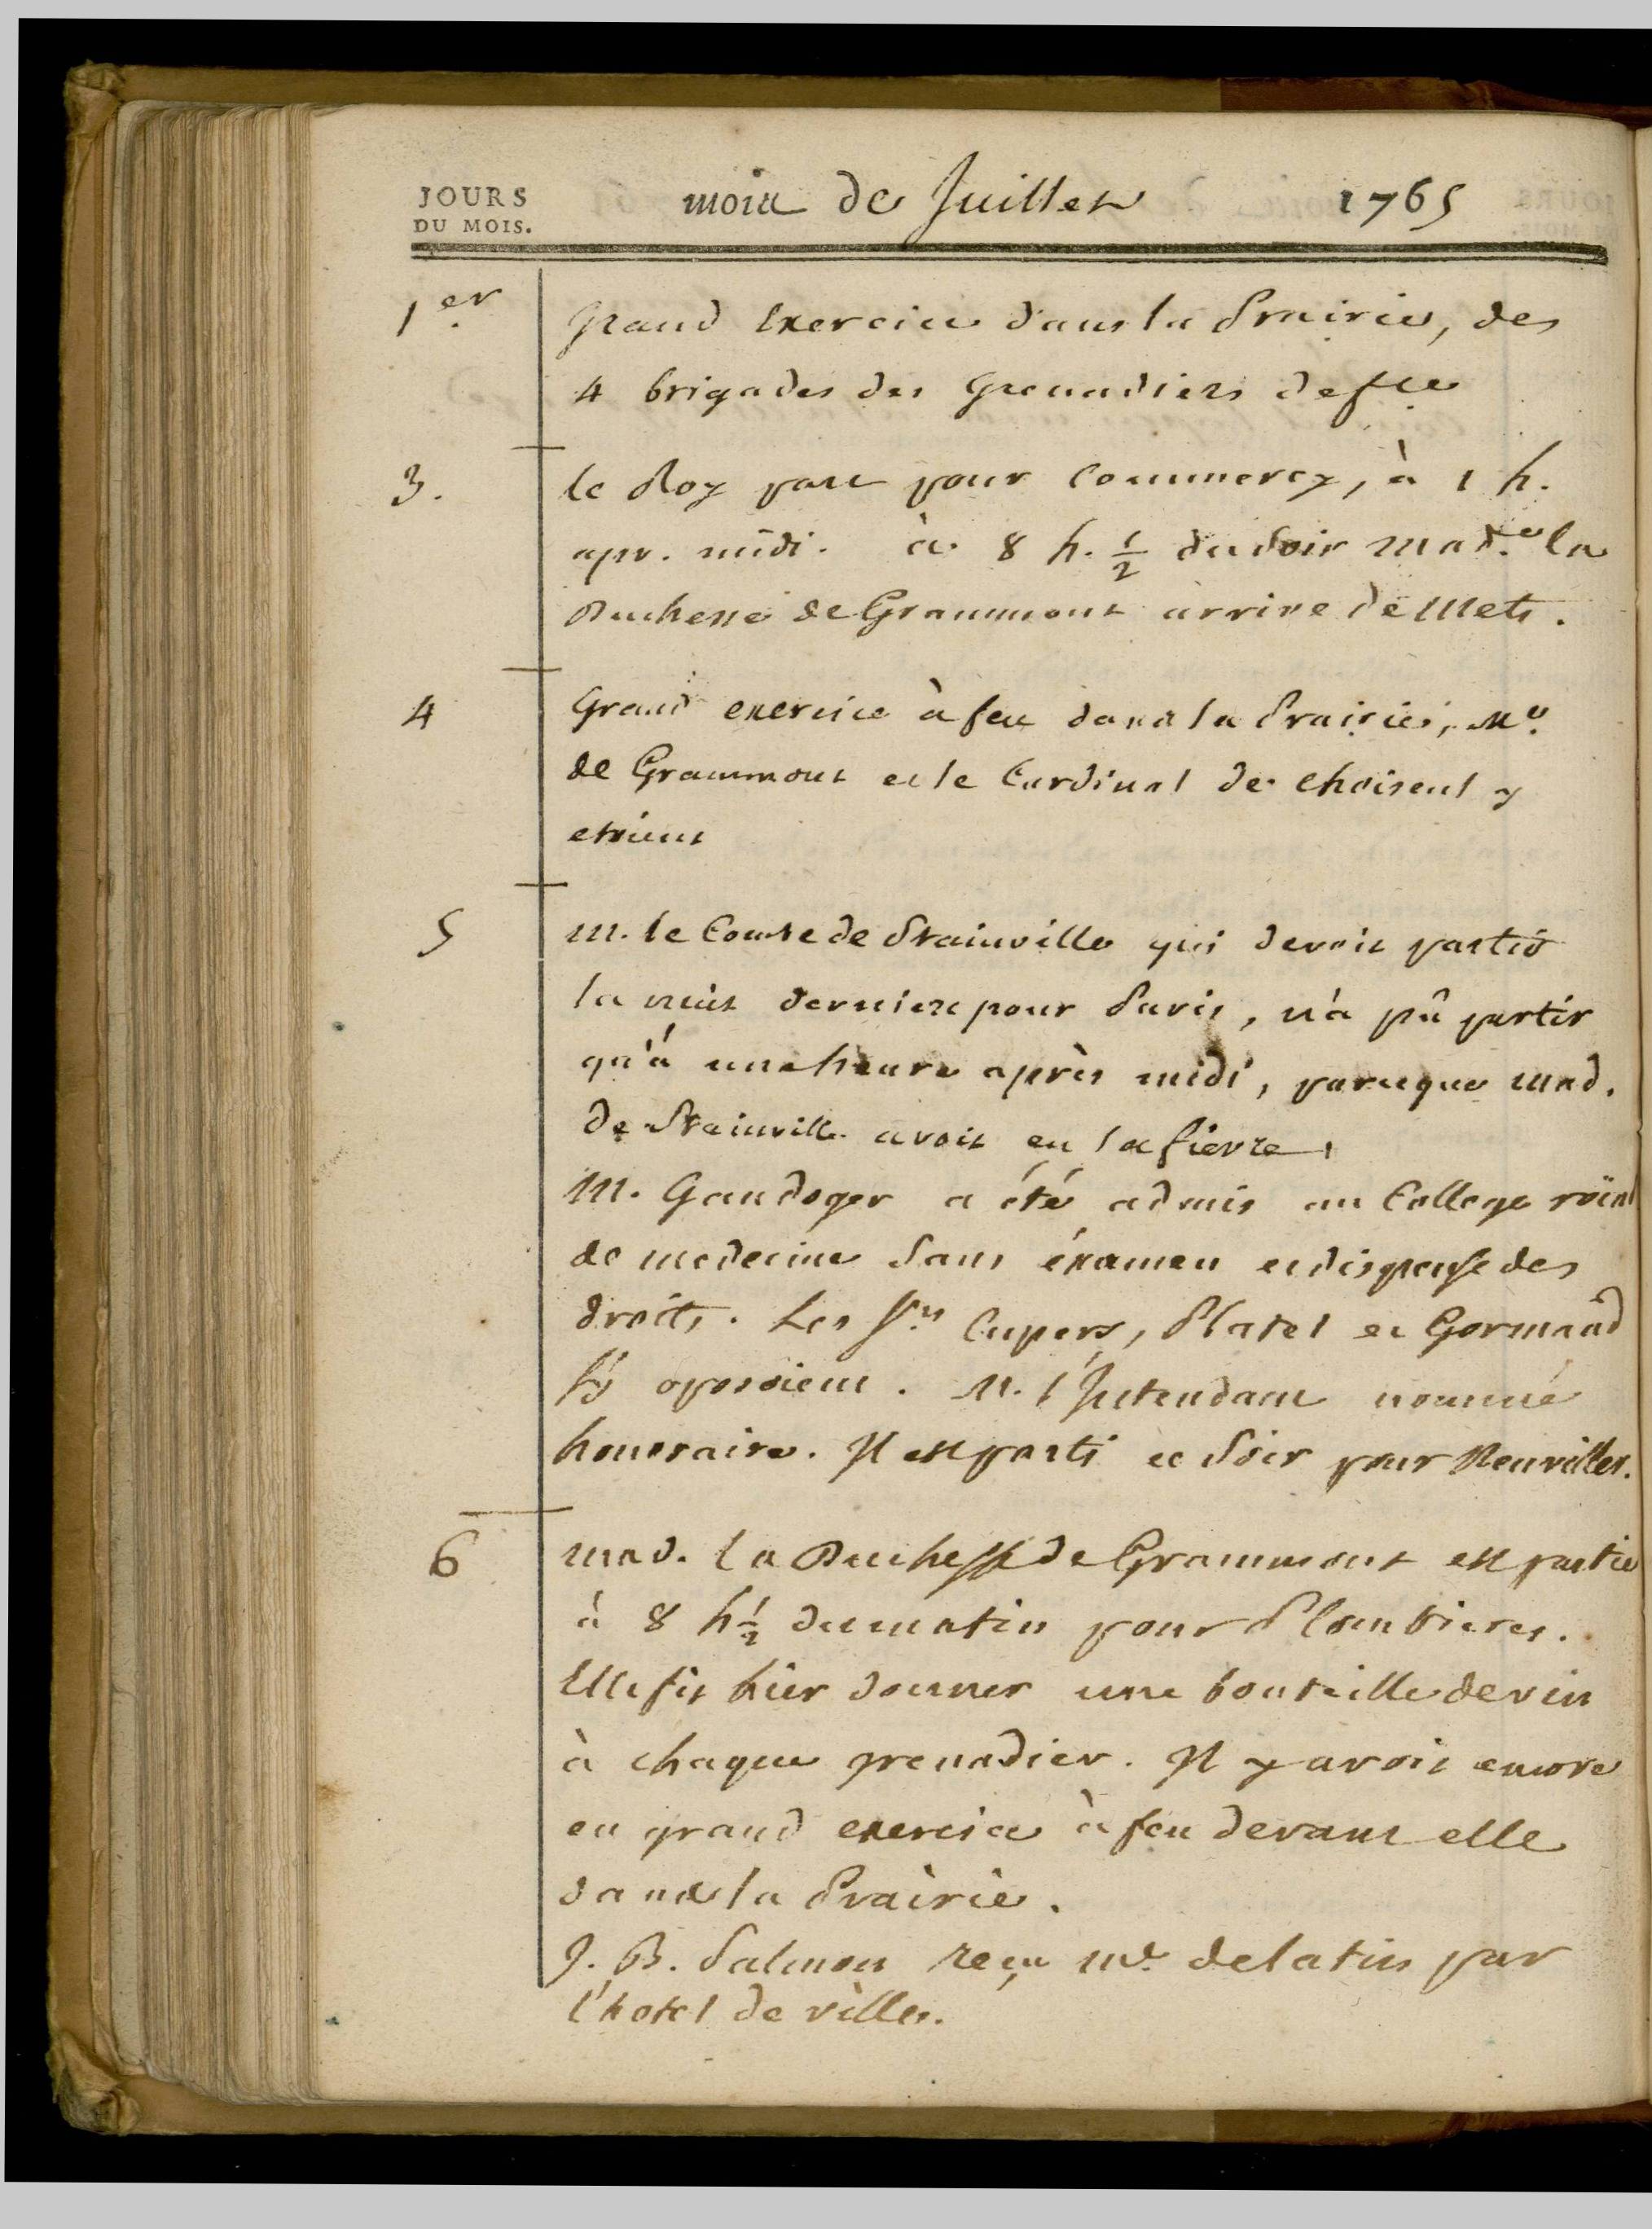 JOURS
DU MOIS.
mois de Juillet 1765
1er. Grand Exercice dans la Prairie, des
4 brigades des Grenadiers de fce
3. le Roy part pour Commercy, à 1 h.
apr. midi. à 8 h. 1/2 du soir Made. la
Duchesse de Grammont arrive de Mets.
4 Grand exercice à feu dans la Prairie, Me.
de Grammont et le Cardinal de Choiseul y
etoient
5 M. le Comte de Stainville qui devoit partir
la nuit derniere pour Paris, n'a pû partir
qu'à une heure après midi, parceque Mad.
de Stainville avoit eu la fievre,
M. Gandoger a été admis au College roïal
de medecine sans éxamen et dispensé des
droits. Les Srs. Cupers, Platel et Gormand
s'y oposoient. M. l'Intendant nommé
honoraire. Il est parti ce soir pour Neuviller.
6 mad. la Duchesse de Grammont est partie
à 8 h 1/2 du matin pour Plombieres.
Elle fit hier donner une bouteille de vin
à chaque grenadier. Il y avoit encore
eu grand exercice à feu devant elle
dans la Prairie.
J. B. Salmon reçu Me. de latin par
l'hotel de ville.